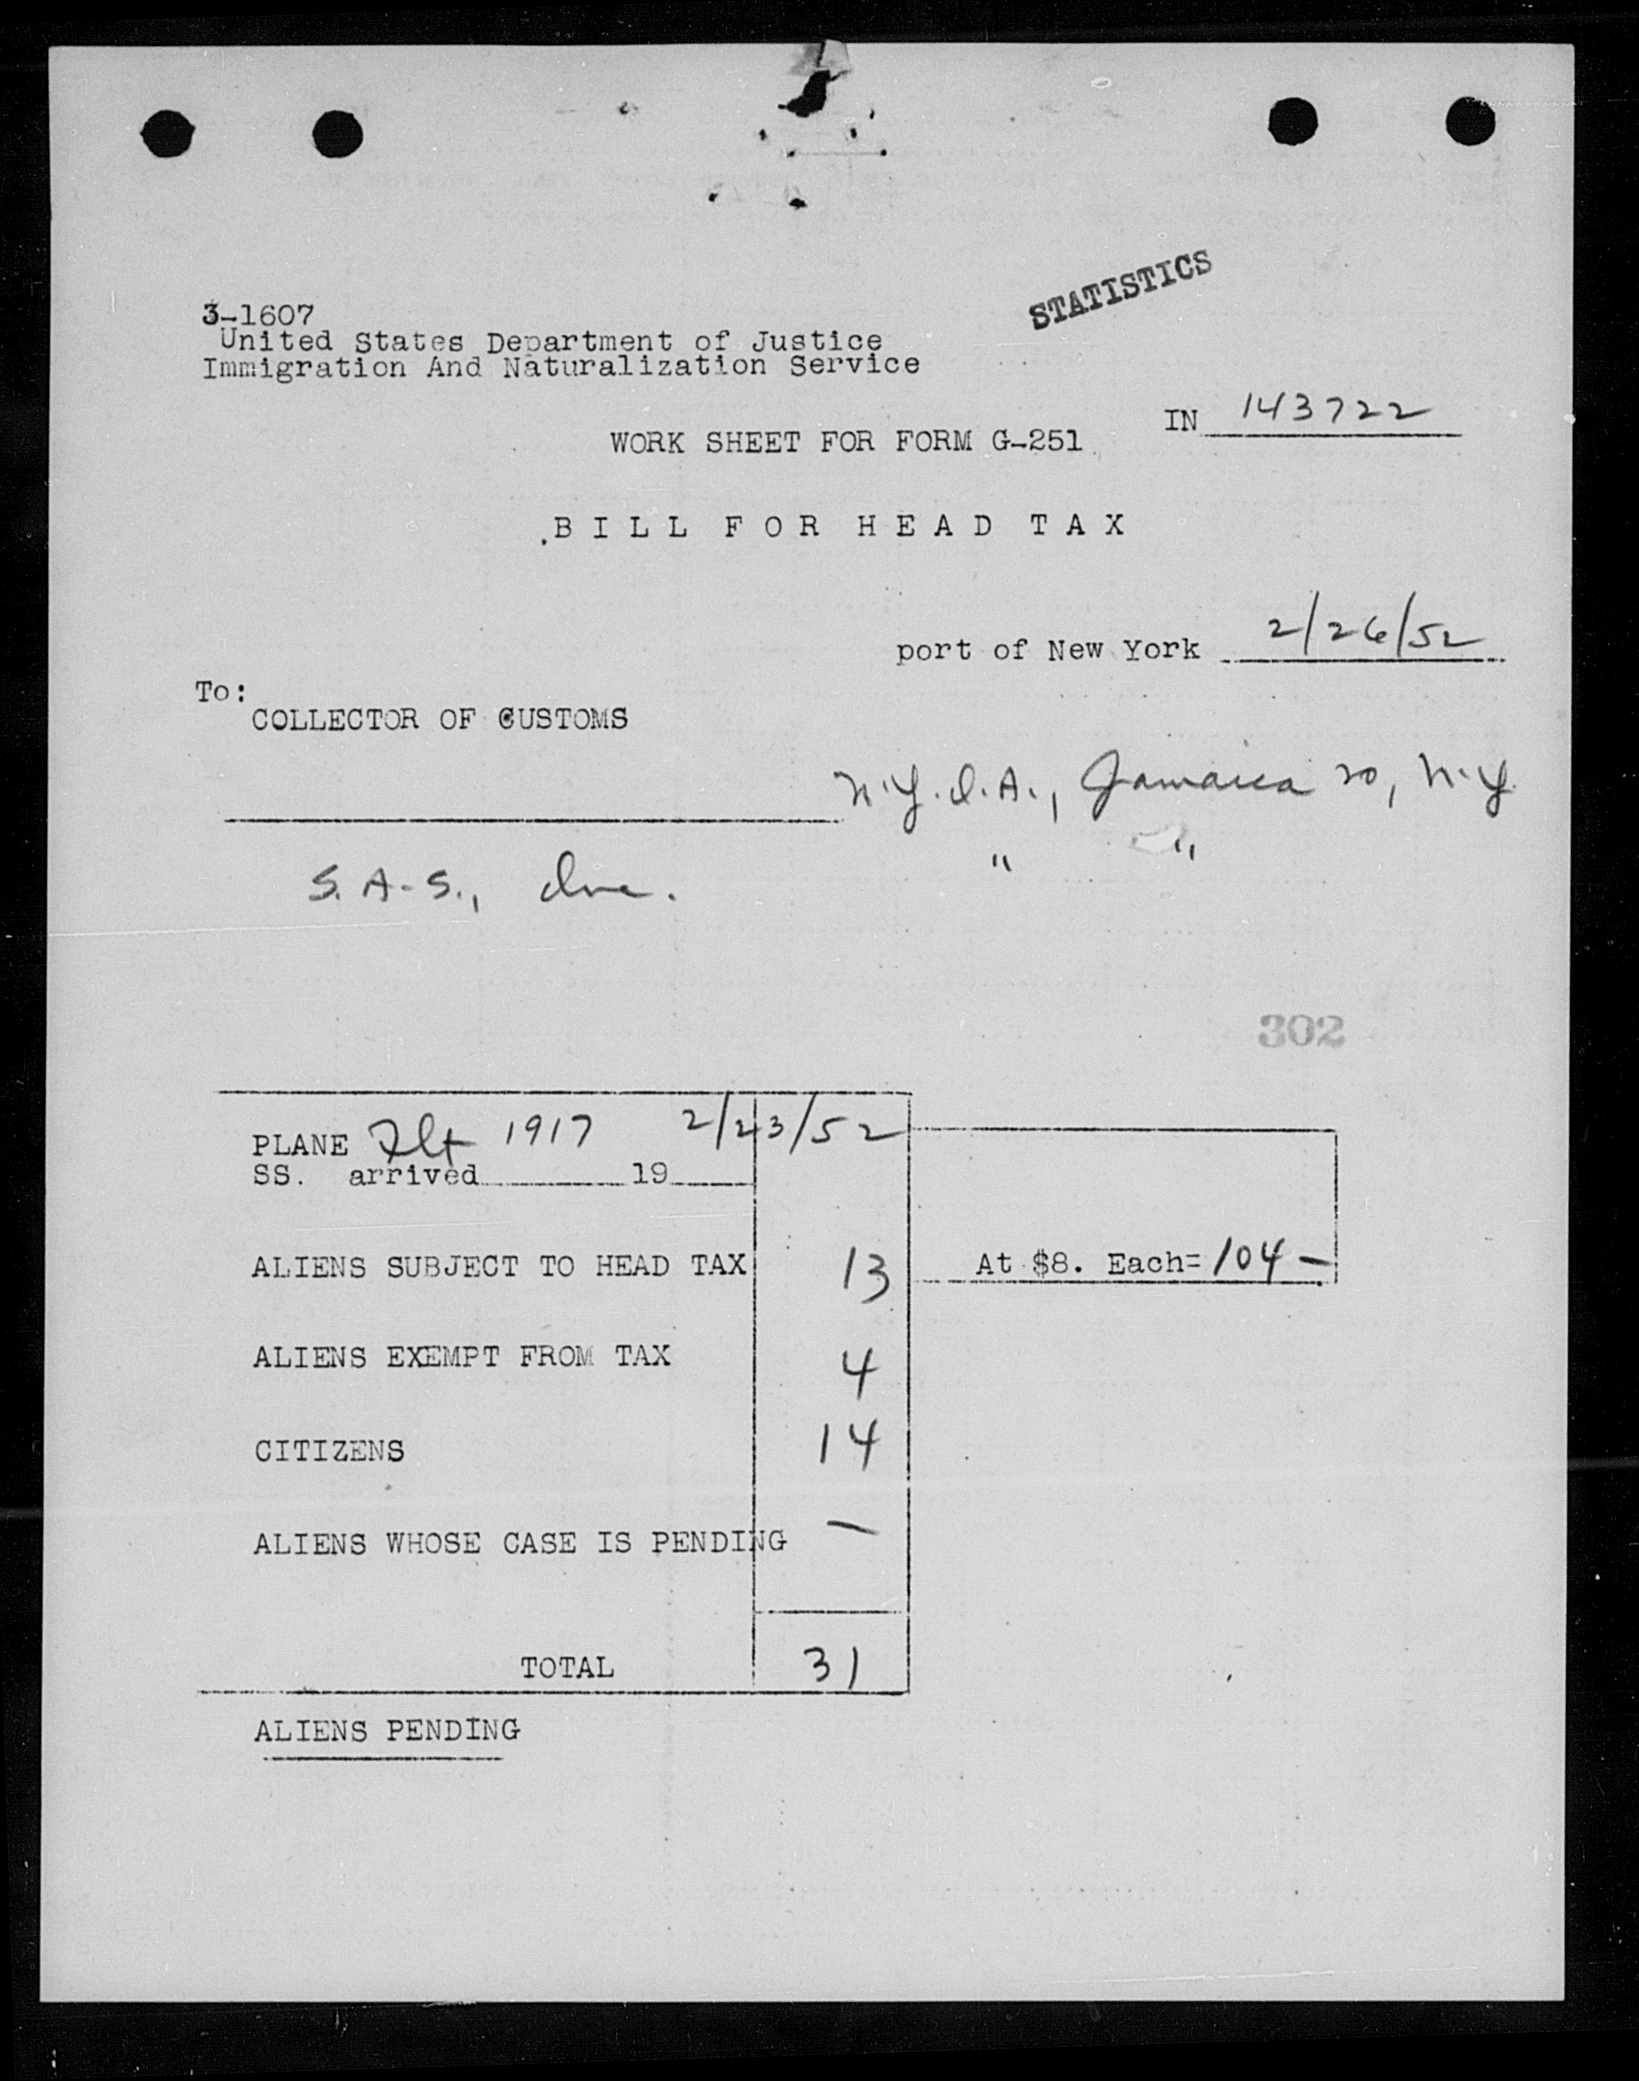 STATISTICS
3-1607
United States Department of Justice
Immigration And Naturalization Service
IN 143722
WORK SHEET FOR FORM G-251
BILL FOR HEAD TAX
port of New York 2/26/52
To:
COLLECTOR OF CUSTOMS
N.Y.I.A., Jamaica 20, N.Y.
" "
S.A.S., Inc.
302
PLANE Flt 1917 2/23/52
SS. arrived 19
ALIENS SUBJECT TO HEAD TAX 13 At $8. Each= 104 -
ALIENS EXEMPT FROM TAX 4
CITIZENS 14
ALIENS WHOSE CASE IS PENDING -
TOTAL 31
ALIENS PENDING